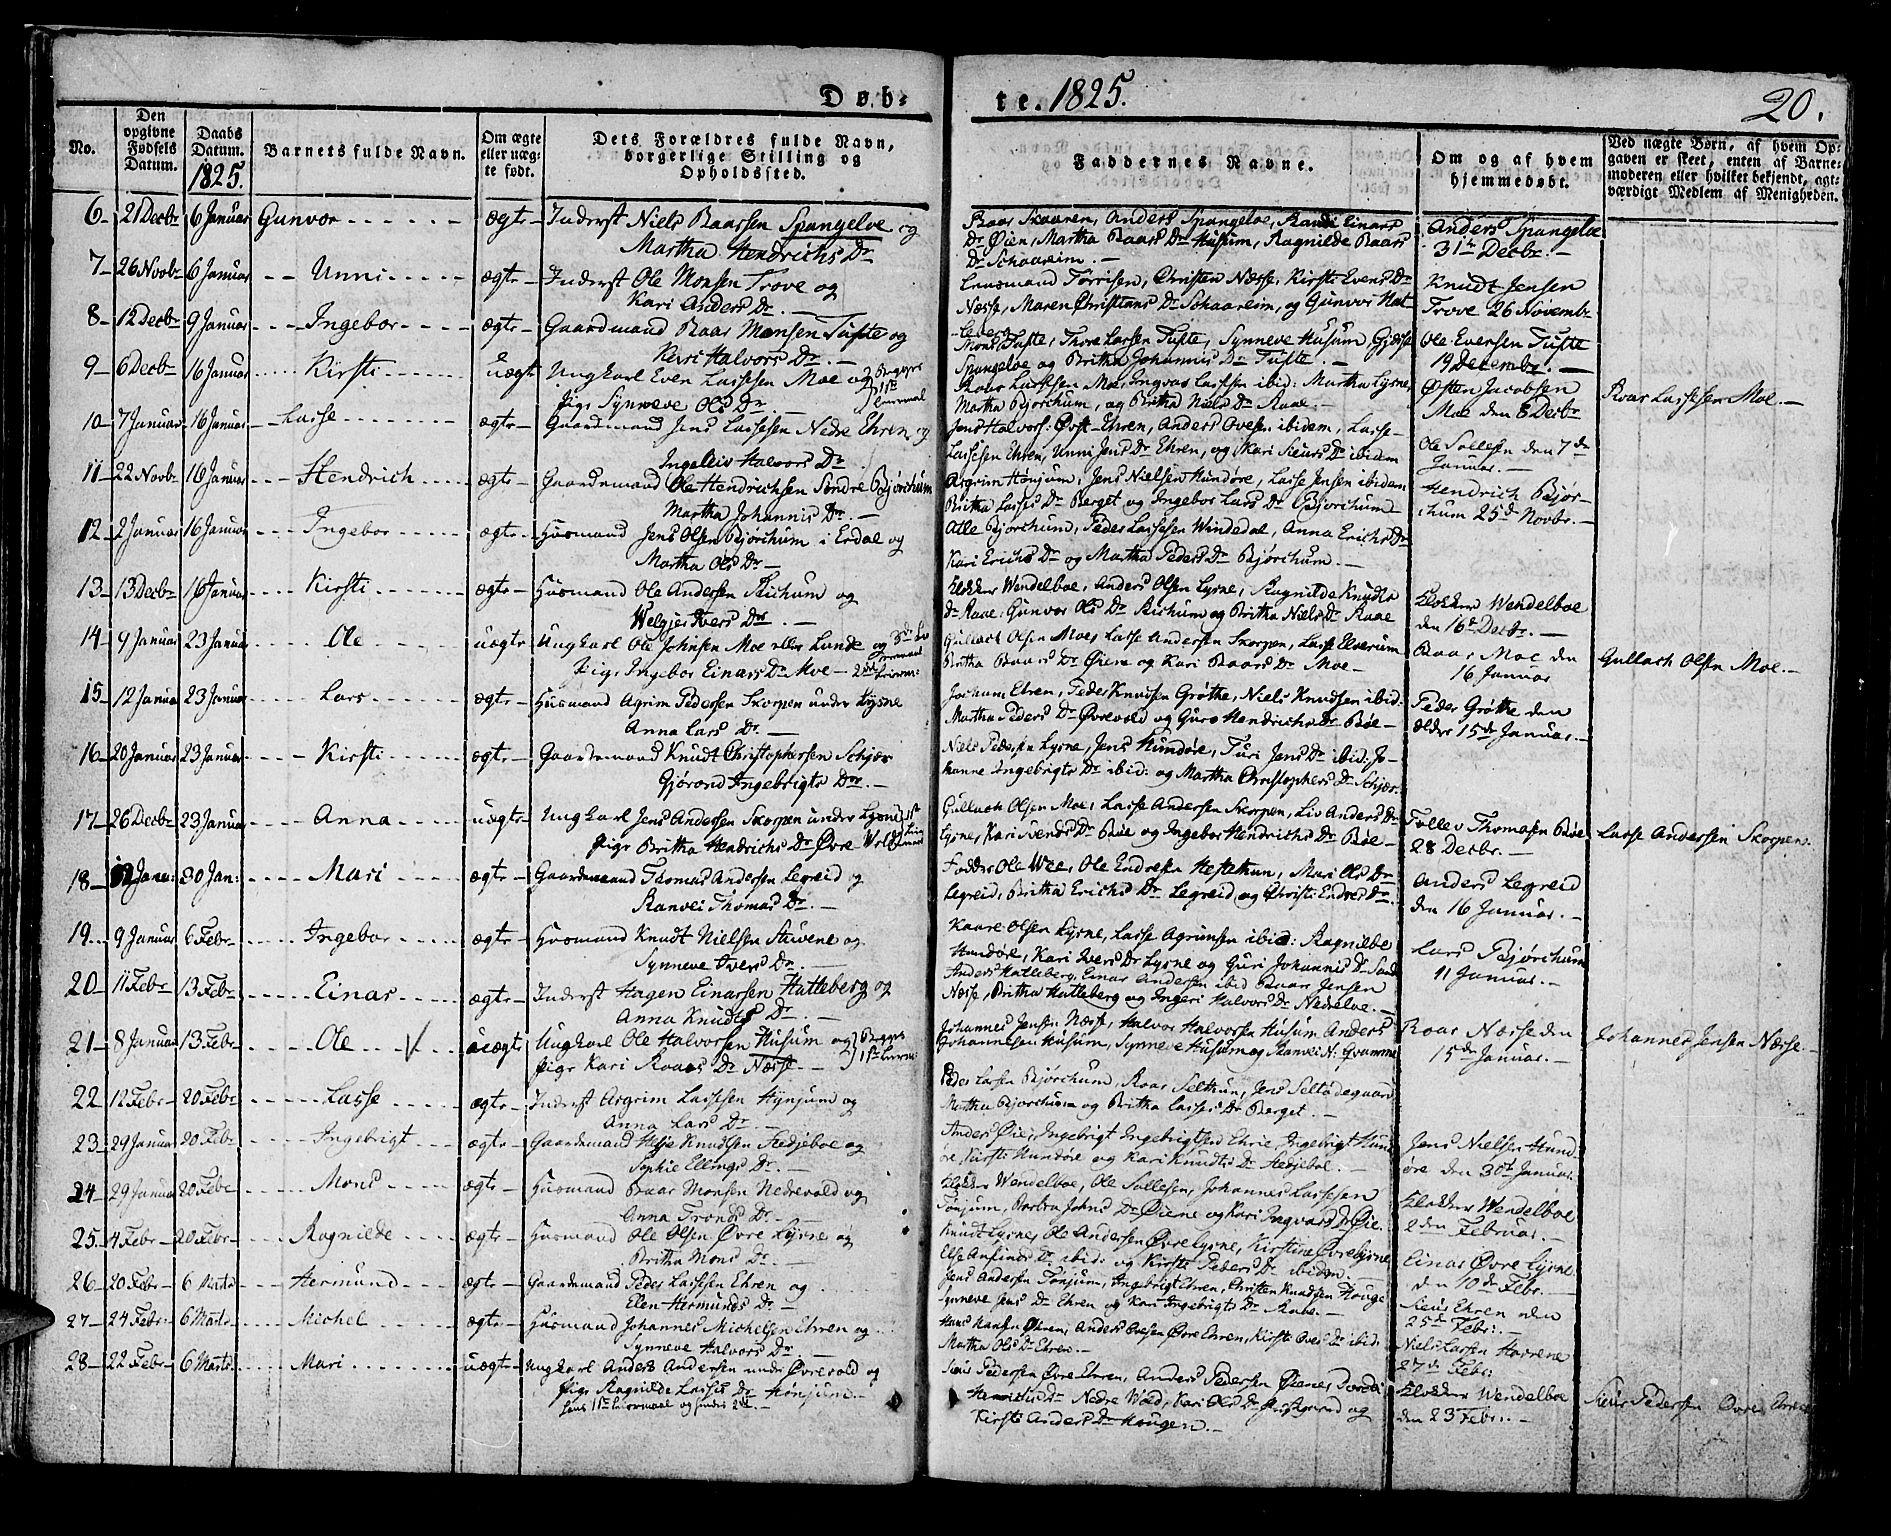 Døb-
te. 1825.
20.
No.
Den opgivne Fødsels Datum.
Daabs Datum. 1825.
Barnets fulde Navn.
Om ægte eller uægte født.
Dets Forældres fulde Navn, borgerlige Stilling og Opholdssted.
Faddernes Navne.
Om og af hvem hjemmedøbt.
Ved uægte Børn, af hvem Opgaven er skeet, enten af Barnemoderen eller hvilket bekjendt, agtværdigt Medlem af Menigheden.
6 21 Decbr 6 Januar Gunvor ægte Inderst Niels Baarsen Spangeloe og
Martha Hendrichs Dr
Anders Spangeloe, Randi Einars
Dr Øien, Martha Baars Dr Husum, Ragnilde Baars
Dr Schaareim.
Anders Spangeloe
31te Decbr.
7 26 Novbr 6 Januar Unni ægte Inderst Ole Monsen Trove og
Kari Anders Dr.
Lensmand Torrisen, Christen Næsse, Kirsti Evens Dr
Næsse, Maren Christians Dr Schaareim, og Gunvor Hat-
leberg
Knudt Jensen
Trove 26 Novembr
8 12 Decbr 9 Januar Ingebor ægte Gaardmand Baar Monsen Tufte og
Kari Halvors Dr.
Mons Tufte, Thore Larsen Tufte, Synneve Husum, Gjertrud
Spangeloe og Britha Johannis Dr Tufte.
Ole Eversen Tufte
19 Decembr.
9 6 Decbr 16 Januar Kirsti uægte Ungkarl Even Lassesen Moe og
Pige Synneve Ols Dr
Begges
1ste
Leiermaal
Roar Lassesen Moe, Ingvar Lassesen ibid: Martha Lysne,
Martha Bjorchum, og Britha Niels Dr Raae.
Østen Jacobsen
Moe den 8 Decbr
Roar Lassesen Moe.
10 7 Januar 16 Januar Lasse ægte Gaardmand Jens Lassesen Nedre Ehren og
Ingeleiv Halvors Dr
Jens Halvors. Øvst-Ehren, Anders Oves. ibidem, Lasse
Lassesen Ehren, Unni Jens Dr Ehren, og Kari Sieurs Dr ibidem
Ole Sallesen den 7de
Januar.
11 22 Novbr 16 Januar Hendrich ægte Gaardemand Ole Hendrichsen Søndre Bjørchum
Martha Johannis Dr.
Argrim Hønjum, Jens Nielsen Hundøre, Lasse Jensen ibidem
Britha Lasses Dr Berget og Ingebor Lars Dr Bjorchum
Hendrich Bjør-
chum 25de Novbr.
12 2 Januar 16 Januar Ingebor ægte Huusmand Jens Olsen Bjorchum i Erdal og
Martha Ols Dr.
Atle Bjorchum, Peder Lassesen Windedal, Anna Erichs Dr
Kari Erichs Dr og Martha Peders Dr Bjørchum.
13 13 Decbr 16 Januar Kirsti ægte Huusmand Ole Andersen Richum og
Welgjer Ivers Dr.
Klokker Wendelboe, Anders Olsen Lysne, Ragnilde Knudts
Dr Raae, Gunvor Ols Dr Richum og Britha Niels Dr Raae
Klokker Wendelboe
den 16de Decbr.
14 9 Januar 23 Januar Ole uægte Ungkarl Ole Johnsen Moe eller Lunde og
Pige Ingebor Einars Dr Moe
Gullach Olsen Moe, Lasse Andersen Skorpen, Lasse Elverum
Britha Baars Dr Øiene og Kari Baars Dr Moe.
Baar Moe den
16 Januar
Gullach Olsen Moe.
15 12 Januar 23 Januar Lars ægte Huusmand Agrim Pedersen Skorpen under Lysne
Anna Lars Dr.
Jochum Ehren, Peder Knudsen Grøthe, Niels Knudsen ibid.
Martha Peders Dr Øvrevold og Guro Hendrichs Dr Bøe
Peder Grøthe den
ældre 15de Januar.
16 20 Januar 23 Januar Kirsti ægte Gaardemand Knudt Christophersen Schjær
Gjørond Ingebrigts Dr.
Niels Pedersen Lysne, Jens Hundøre, Turi Jens Dr ibid: Jo-
hanne Ingebrigts Dr ibid: og Martha Christophers Dr Schjær.
17 26 Decbr 23 Januar Anna uægte Ungkarl Jens Andersen Skorpen under Lysne
Pige Britha Hendrichs Dr Øvre Wold
Gullach Olsen Moe, Lasse Andersen Skorpen, Liv Anders Dr
Lysne, Kari Svends Dr Bøe og Ingebor Hendrichs Dr Bøe
Tollev Thomasen Bøe
28 Decbr.
Lasse Andersen Skorpen.
18 12 Janu: 30 Jan: Mari ægte Gaardemand Thomas Andersen Legreid og
Ranvei Thomas Dr.
Fadder Ole Wee, Ole Endresen Hestethun, Mari Ols Dr
Legreid, Britha Erichs Dr Legreid, og Christi Endres Dr
Anders Legreid
den 16 Januar.
19 9 Januar 6 Febr Ingebor ægte Huusmand Knudt Nielsen Stuvene og
Synneve Ivers Dr.
Kaare Olsen Lysne, Lasse Agrimsen ibid: Ragnilde
Hundøre, Kari Ivers Dr Lysne og Guri Johannis Dr
Lars Bjørchum
11 Januar.
20 11 Febr 13 Febr Einar ægte Inderst Hagen Einarsen Hatleberg og
Anna Knudts Dr.
Anders Hatleberg, Einar Andersen ibid Baar Jensen
Næsse, Britha Hatleberg og Ingeri Halvors Dr Nedreloe.
21 8 Januar 13 Febr Ole uægte Ungkarl Ole Halvorsen Husum og
Pige Kari Roars Dr Næsse.
Begges
1ste Leierm:
Johannes Jensen Næsse, Halvor Halvorsen Husum Anders
Johannesen Husum, Synneve Husum og Ranvei N: Qvamme
Roar Næsse den
15de Januar.
Johannes Jensen Næsse.
22 12 Febr 20 Febr Lasse ægte Inderst Argrim Lassesen Hynjum og
Anna Lars Dr.
Peder Larsen Bjørchum, Roar Selthun, Jens Seltødegaard
Martha Bjorchum og Britha Lasses Dr Berget.
23 29 Januar 20 Feb Ingebrigt ægte Gaardemand Helje Knudsen Stedjeboe og
Sophie Ellings Dr.
Anders Øie, Ingebrigt Ingebrigtsen Ehrie, Ingebrigt Hund-
øre, Kirsti Hundøre og Kari Knudts Dr Stedjeboe.
Jens Nielsen Hund-
øre den 30te Januar.
24 29 Januar 20 Febr Mons ægte Huusmand Baar Monsen Nedrevold og
Anna Tronds Dr.
Klokker Wendelboe, Ole Sallesen, Johannes Lassesen
Tønjum, Barbra Johns Dr Øiene og Kari Ingvars Dr Øie.
Klokker Wendelboe
2den Februar.
25 4 Febr 20 Febr Ragnilde ægte Huusmand Ole Olsen Øvre Lysne og
Britha Mons Dr.
Knudt Lysne, Ole Andersen Øvre Lysne, Kirstine Øvrelysne,
Else Anfinds Dr ibid: og Kirsti Peders Dr ibidem.
Einar Øvre Lysne
den 10de Febr.
26 20 Febr 6 Marts Hermund ægte Gaardemand Peder Lassesen Ehren og
Elen Hermunds Dr
Jens Andersen Tønjum, Ingebrigt Ehren, Christen Knudsen Houge
Synneve Jens Dr Ehren og Kari Ingebrigts Dr Raae.
Sieur Ehren den
25de Febr.
27 24 Febr 6 Marts Michel ægte Huusmand Johannes Michelsen Ehren og
Synneve Halvors Dr.
Hans Hansen Ehren, Anders Ovesen Øvre Ehren, Kirsti Oves Dr ibid:
Martha Ols Dr Ehren.
Niels Larsen Haverene
27de Febr:
28 22 Febr 6 Marts Mari uægte Ungkarl Anders Andersen under Øvrevold og
Pige Ragnilde Lasses Dr Hønjum
hans 1ste Leiermaal og hendes 2det.
Sieur Pedersen Øvre Ehren, Anders Pedersen Øiene, Dordei
Henrichs Dr Nedre Wold, Kari Ols Dr og
Kirsti Anders Dr Hougen.
Klokker Wendelboe
den 23 Febr.
Sieur Pedersen Øvre Ehren